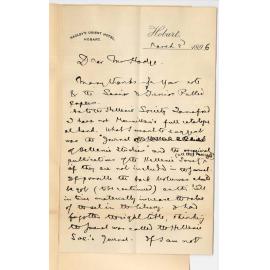 HADLEY'S ORIENT HOTEL,
HOBART.
Hobart,
March 8 1906
Dear Mr Hodge
Many thanks for your note
& the Senior & Junior Public
Papers.
As to the Hellenic Society Transfers
I have not Macmillan's full catalogue
at hand. What I meant to suggest
was the "Journal of
of Hellenic Studies" and the original
publications of the Hellenic Society
if they are not included in the Journal.
If possible the back volumes should
be got (& be continued) as the
in time materially increase the value
of the set in the library. I had
forgotten the right title thinking
the Journal was called the Hellenic
Soc's Journal. If I am not